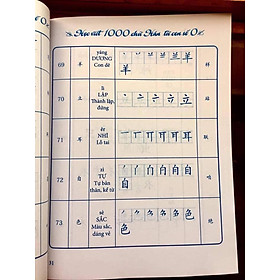 Học viết 1000 chữ Hán từ con số 0
69
羊
yáng
DƯƠNG
Con dê
羊
70
立
lì
LẬP
Thành lập,
đứng
立
71
耳
ěr
NHĨ
Lỗ tai
耳
72
自
zì
TỰ
Tự bản
thân, kể từ
自
73
色
sè
SẮC
Màu sắc,
dáng vẻ
色